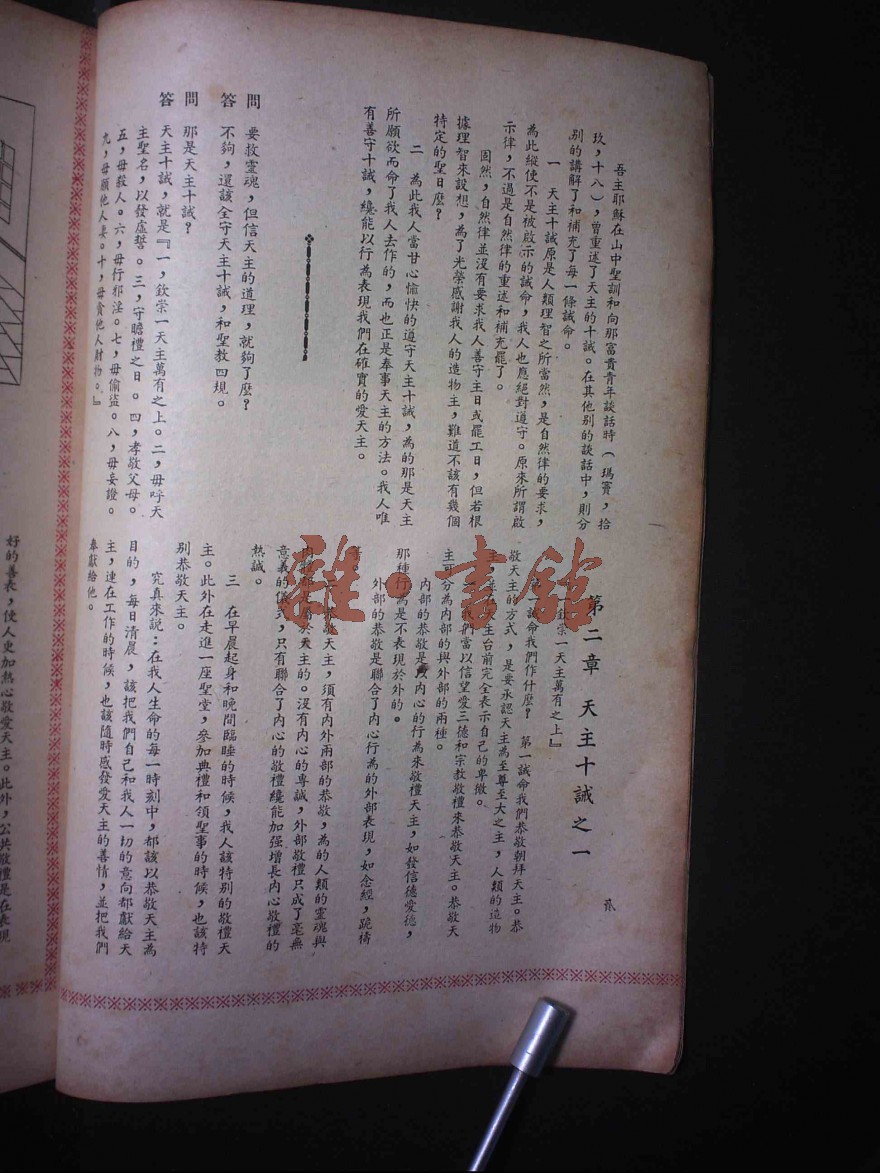 吾主耶穌在山中聖訓和向那富貴青年談話時(瑪竇,拾
玖,十八),曾重述了天主的十誡。在其他別的談話中,則分
別的講解了和補充了每一條誡命。
一 天主十誡原是人類理智之所當然,是自然律的要求,
為此縱使不是被啟示的誡命,我人也應絕對遵守。原來所謂啟
示律,不過是自然律的重述和補充罷了。
固然,自然律並沒有要求我人善守主日或罷工日,但若根
據理智來設想,為了光榮感謝我人的造物主,難道不該有幾個
特定的聖日麼?
二 為此我人當甘心愉快的遵守天主十誡,為的那是天主
所願欲而命了我人去作的,而也正是奉事天主的方法。我人唯
有善守十誡,纔能以行為表現我們在確實的愛天主。
問 要救靈魂,但信天主的道理,就夠了麼?
答 不夠,還該全守天主十誡,和聖教四規。
問 那是天主十誡?
答 天主十誡,就是『一,欽崇一天主萬有之上。二,毋呼天
主聖名,以發虛誓。三,守瞻禮之日。四,孝敬父母。
五,毋殺人。六,毋行邪淫。七,毋偷盜。八,毋妄證。
九,毋願他人妻。十,毋貪他人財物。』
第二章 天主十誡之一
貳
一欽崇一天主萬有之上』
第一誡命我們作什麼? 第一誡命我們恭敬朝拜天主。恭
敬天主的方式,是要承認天主為至尊至大之主,人類的造物
主,在天主台前完全表示自己的卑微。
我們當以信望愛三德和宗教敬禮來恭敬天主。恭敬天
主可分為內部的與外部的兩種。
內部的恭敬是以內心的行為來敬禮天主,如發信德愛德,
那種行為是不表現於外的。
外部的恭敬是聯合了內心行為的外部表現,如念經,跪禱
等。
恭敬天主,須有內外兩部的恭敬,為的人類的靈魂與
肉體都是屬於天主的。沒有內心的專誠,外部敬禮只成了毫無
意義的儀式,只有聯合了內心的敬禮纔能加强增長內心敬禮的
熱誠。
三 在早晨起身和晚間臨睡的時候,我人該特別的敬禮天
主。此外在走進一座聖堂,參加典禮和領聖事的時候,也該特
別恭敬天主。
究真來説:在我人生命的每一時刻中,都該以恭敬天主為
目的,每日清晨,該把我們自己和我人一切的意向都獻給天
主,連在工作的時候,也該隨時感發愛天主的善情,並把我們
奉獻給他。
好的善表,使人更加熱心敬愛天主。此外,公共敬禮是在表現
雜·書館